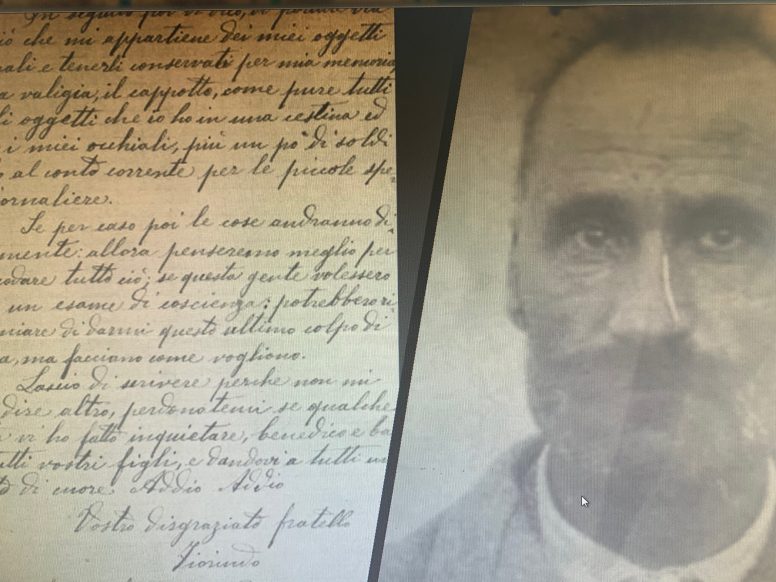 In seguito poi vi dico, di portar via
iò che mi appartiene dei miei oggetti
nali e tenerli conservati per mia memoria,
a valigia, il cappotto, come pure tutti
li oggetti che io ho in una cestina ed
i miei occhiali, più un po' di soldi
al conto corrente per le piccole spe-
iornaliere.
Se per caso poi le cose andranno di
mente: allora penseremo meglio per
odare tutto ciò; se questa gente volessero
un esame di coscienza: potrebbero ri-
niare di darmi questo ultimo colpo di
a, ma facciano come vogliono.
Lascio di scrivere perchè non mi
dire altro, perdonatemi se qualche
vi ho fatto inquietare, benedico e ba
tti vostri figli, e dandovi a tutti un
di cuore Addio Addio
Vostro disgraziato fratello
Fiorindo